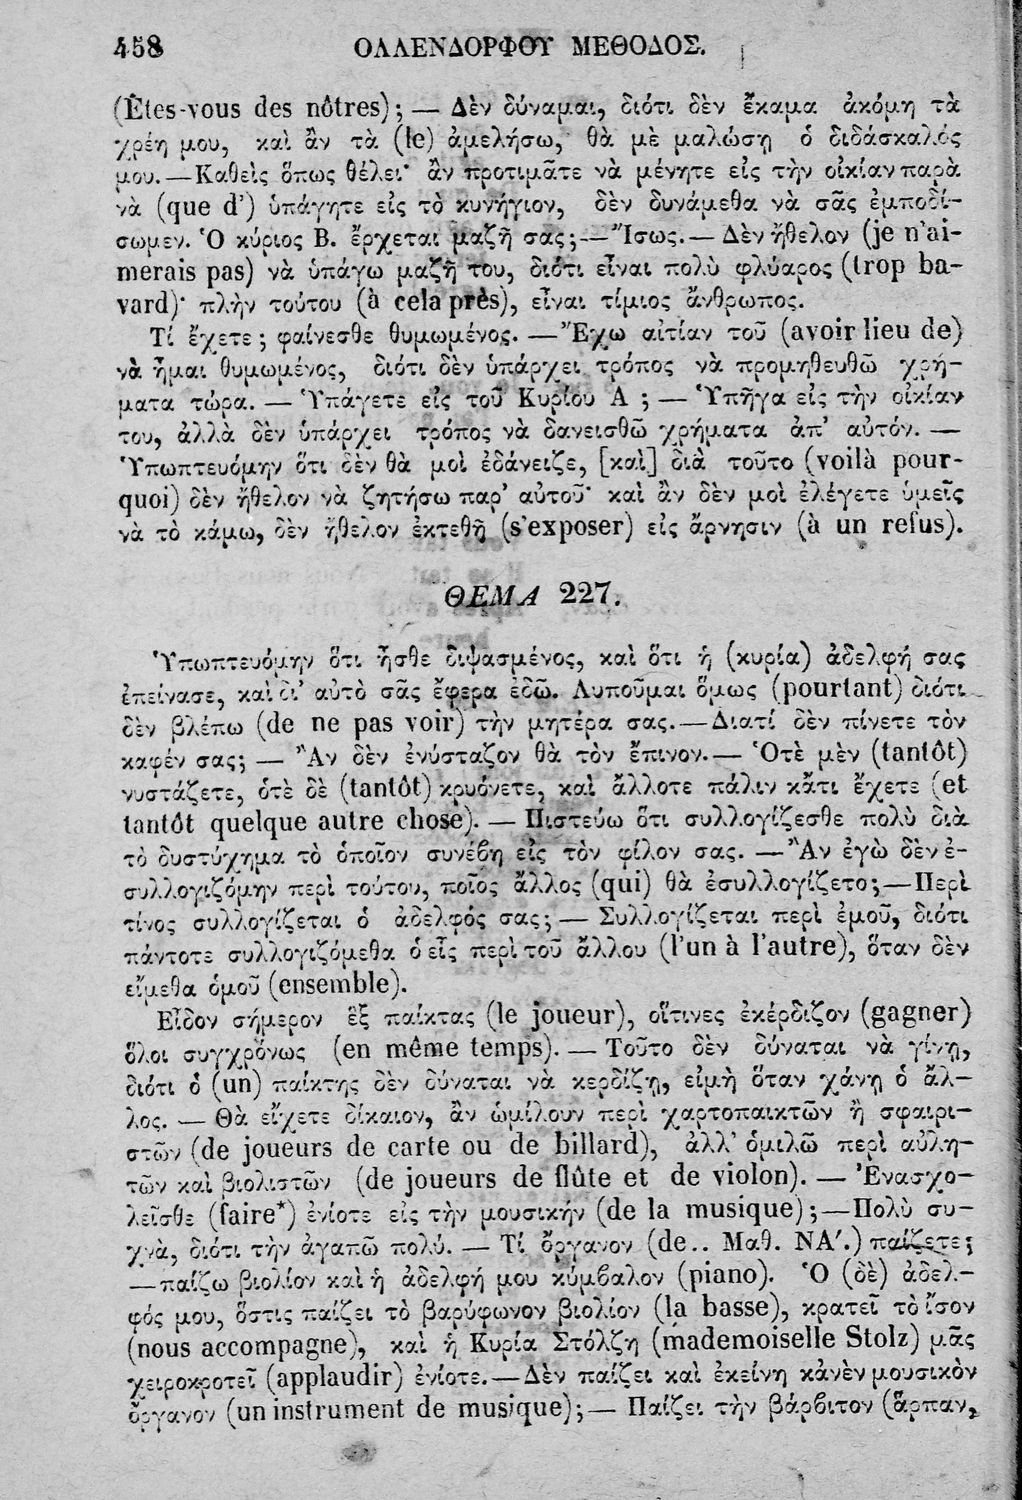 458 ΟΛΛΕΝΔΟΡΦΟΥ ΜΕΘΟΔΟΣ.
(Êtes-vous des nôtres); — Δὲν δύναμαι, διότι δὲν ἔκαμα ἀκόμη τὰ
χρέη μου, καὶ ἂν τὰ (le) ἀμελήσω, θὰ μὲ μαλώσῃ ὁ διδάσκαλός
μου.—Καθεὶς ὅπως θέλει· ἂν προτιμᾶτε νὰ μένητε εἰς τὴν οἰκίαν παρὰ
νὰ (que d') ὑπάγητε εἰς τὸ κυνήγιον, δὲν δυνάμεθα νὰ σᾶς ἐμποδί-
σωμεν. Ὁ κύριος Β. ἔρχεται μαζῆ σας;—Ἴσως.— Δὲν ἤθελον (je n'ai-
merais pas) νὰ ὑπάγω μαζῆ του, διότι εἶναι πολὺ φλύαρος (trop ba-
vard)· πλὴν τούτου (à cela près), εἶναι τίμιος ἄνθρωπος.
Τί ἔχετε; φαίνεσθε θυμωμένος. — Ἔχω αἰτίαν τοῦ (avoir lieu de)
νὰ ἦμαι θυμωμένος, διότι δὲν ὑπάρχει τρόπος νὰ προμηθευθῶ χρή-
ματα τώρα. — Ὑπάγετε εἰς τοῦ Κυρίου Α ; — Ὑπῆγα εἰς τὴν οἰκίαν
του, ἀλλὰ δὲν ὑπάρχει τρόπος νὰ δανεισθῶ χρήματα ἀπ' αὐτόν. —
Ὑπωπτευόμην ὅτι δὲν θὰ μοὶ ἐδάνειζε, [καὶ] διὰ τοῦτο (voilà pour-
quoi) δὲν ἤθελον νὰ ζητήσω παρ' αὐτοῦ· καὶ ἂν δὲν μοὶ ἐλέγετε ὑμεῖς
νὰ τὸ κάμω, δὲν ἤθελον ἐκτεθῆ (s'exposer) εἰς ἄρνησιν (à un refus).
ΘΕΜΑ 227.
Ὑπωπτευόμην ὅτι ἦσθε διψασμένος, καὶ ὅτι ἡ (κυρία) ἀδελφή σας
ἐπείνασε, καὶ δι' αὐτὸ σᾶς ἔφερα ἐδῶ. Λυποῦμαι ὅμως (pourtant) διότι
δὲν βλέπω (de ne pas voir) τὴν μητέρα σας.—Διατί δὲν πίνετε τὸν
καφέν σας; — Ἂν δὲν ἐνύσταζον θὰ τὸν ἔπινον.— Ὁτὲ μὲν (tantôt)
νυστάζετε, ὁτὲ δὲ (tantôt) κρυόνετε, καὶ ἄλλοτε πάλιν κἄτι ἔχετε (et
tantôt quelque autre chose). — Πιστεύω ὅτι συλλογίζεσθε πολὺ διὰ
τὸ δυστύχημα τὸ ὁποῖον συνέβη εἰς τὸν φίλον σας. —Ἂν ἐγὼ δὲν ἐ-
συλλογιζόμην περὶ τούτου, ποῖος ἄλλος (qui) θὰ ἐσυλλογίζετο;—Περὶ
τίνος συλλογίζεται ὁ ἀδελφός σας;— Συλλογίζεται περὶ ἐμοῦ, διότι
πάντοτε συλλογιζόμεθα ὁ εἷς περὶ τοῦ ἄλλου (l'un à l'autre), ὅταν δὲν
εἴμεθα ὁμοῦ (ensemble).
Εἶδον σήμερον ἓξ παίκτας (le joueur), οἵτινες ἐκέρδιζον (gagner)
ὅλοι συγχρόνως (en même temps). — Τοῦτο δὲν δύναται νὰ γίνῃ,
διότι ὁ (un) παίκτης δὲν δύναται νὰ κερδίζῃ, εἰμὴ ὅταν χάνῃ ὁ ἄλ-
λος. — Θὰ εἴχετε δίκαιον, ἂν ὡμίλουν περὶ χαρτοπαικτῶν ἢ σφαιρι-
στῶν (de joueurs de carte ou de billard), ἀλλ' ὁμιλῶ περὶ αὐλη-
τῶν καὶ βιολιστῶν (de joueurs de flûte et de violon). — Ἐνασχο-
λεῖσθε (faire*) ἐνίοτε εἰς τὴν μουσικήν (de la musique);—Πολὺ συ-
χνὰ, διότι τὴν ἀγαπῶ πολύ. — Τί ὄργανον (de.. Μαθ. ΝΑ'.) παίζετε;
—παίζω βιολίον καὶ ἡ ἀδελφή μου κύμβαλον (piano). Ὁ (δὲ) ἀδελ-
φός μου, ὅστις παίζει τὸ βαρύφωνον βιολίον (la basse), κρατεῖ τὸ ἴσον
(nous accompagne), καὶ ἡ Κυρία Στόλζη (mademoiselle Stolz) μᾶς
χειροκροτεῖ (applaudir) ἐνίοτε.—Δὲν παίζει καὶ ἐκείνη κἀνὲν μουσικὸν
ὄργανον (un instrument de musique);— Παίζει τὴν βάρβιτον (ἅρπαν,